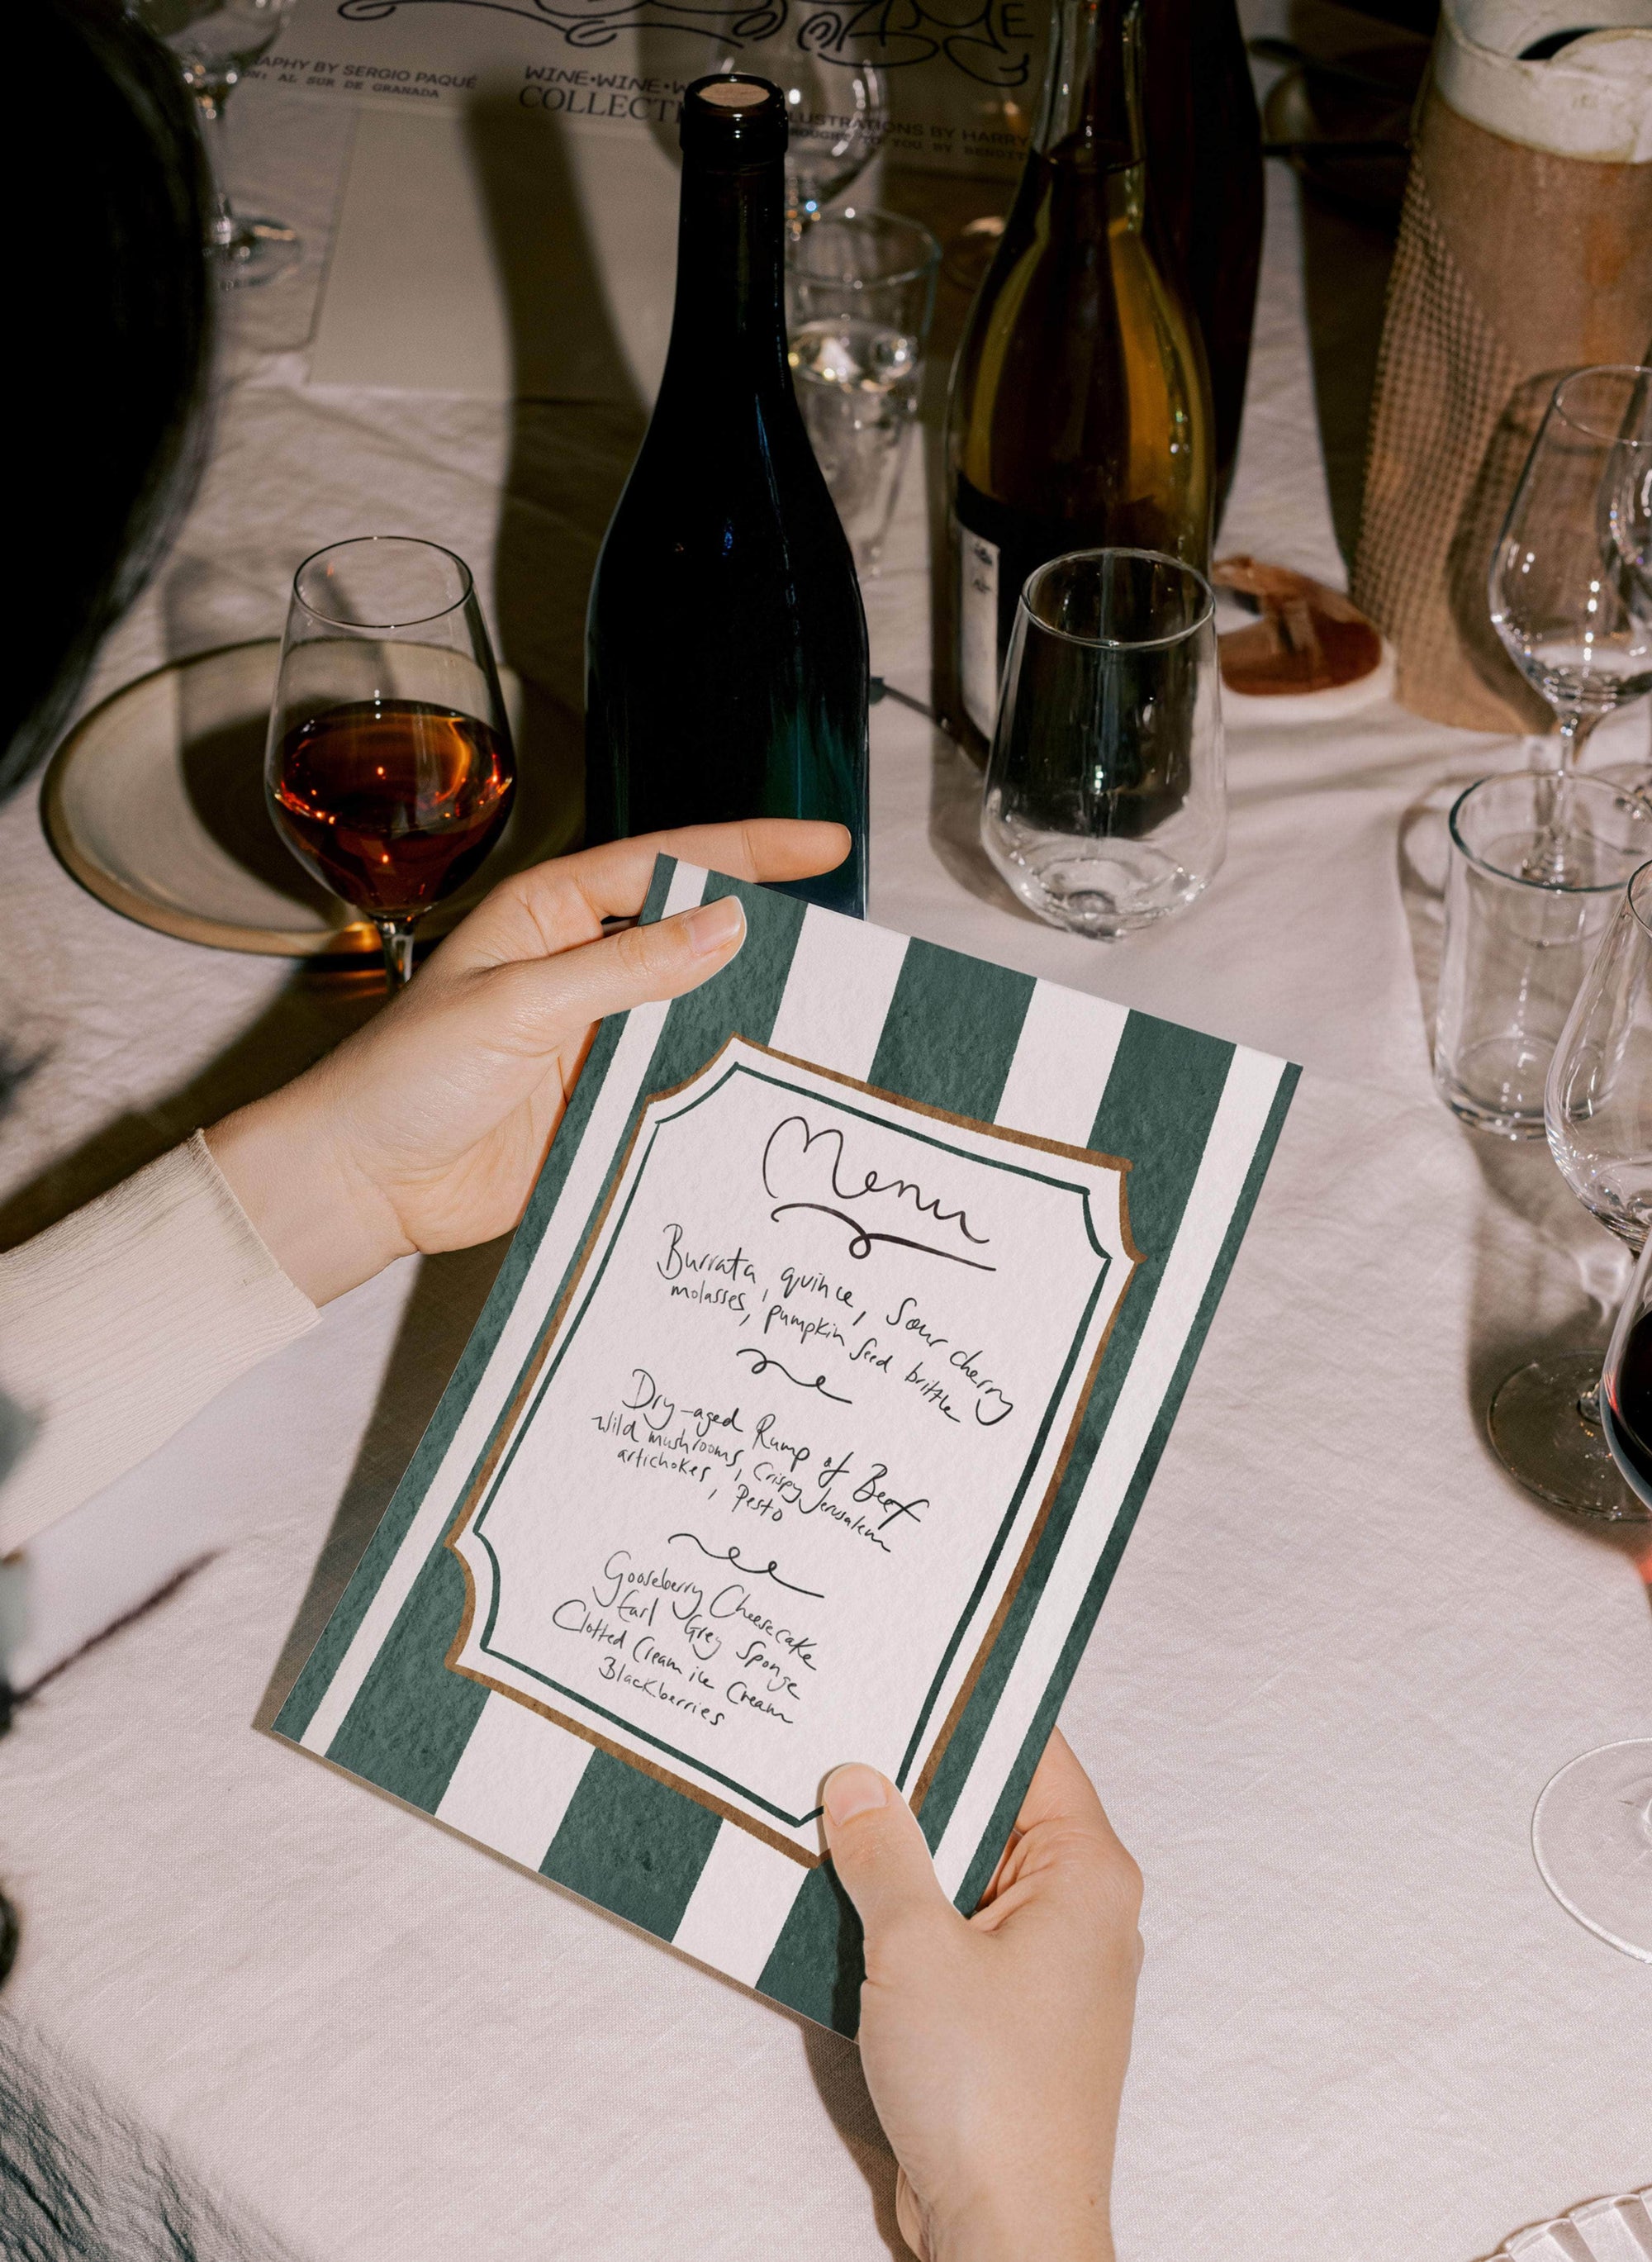 E
APHY BY SERGIO PAQUÉ
ON: AL SUR DE GRANADA
WINE•WINE•W
COLLECTI
LUSTRATIONS BY HARRY
BOUGHT TO YOU BY
Menu
Burrata, quince, Sour cherry
molasses, pumpkin seed brittle
Dry-aged Rump of Beef
wild mushrooms, Crispy Jerusalem
artichokes, Pesto
Gooseberry Cheesecake
Earl Grey Sponge
Clotted Cream ice Cream
Blackberries